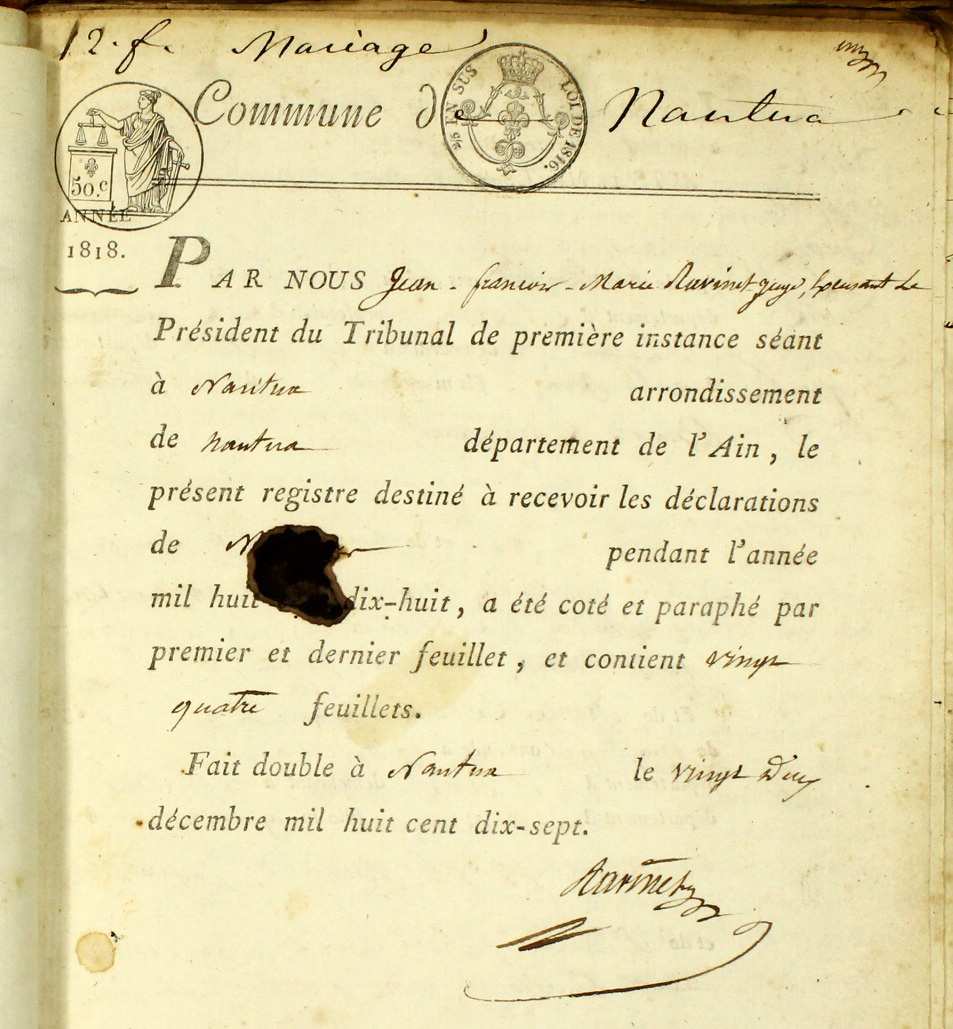 12. f. Mariage
Commune de Nantua
EN SUS LOI DE 1816.
50.c
ANNÉE
1818.
PAR NOUS Jean-francois-Marie Ravinet juge,
Président du Tribunal de première instance séant
à Nantua arrondissement
de nantua département de l'Ain, le
présent registre destiné à recevoir les déclarations
de pendant l'année
mil huit dix-huit, a été coté et paraphé par
premier et dernier feuillet, et contient vingt
quatre feuillets.
Fait double à Nantua le vingt
décembre mil huit cent dix-sept.
Ravinet